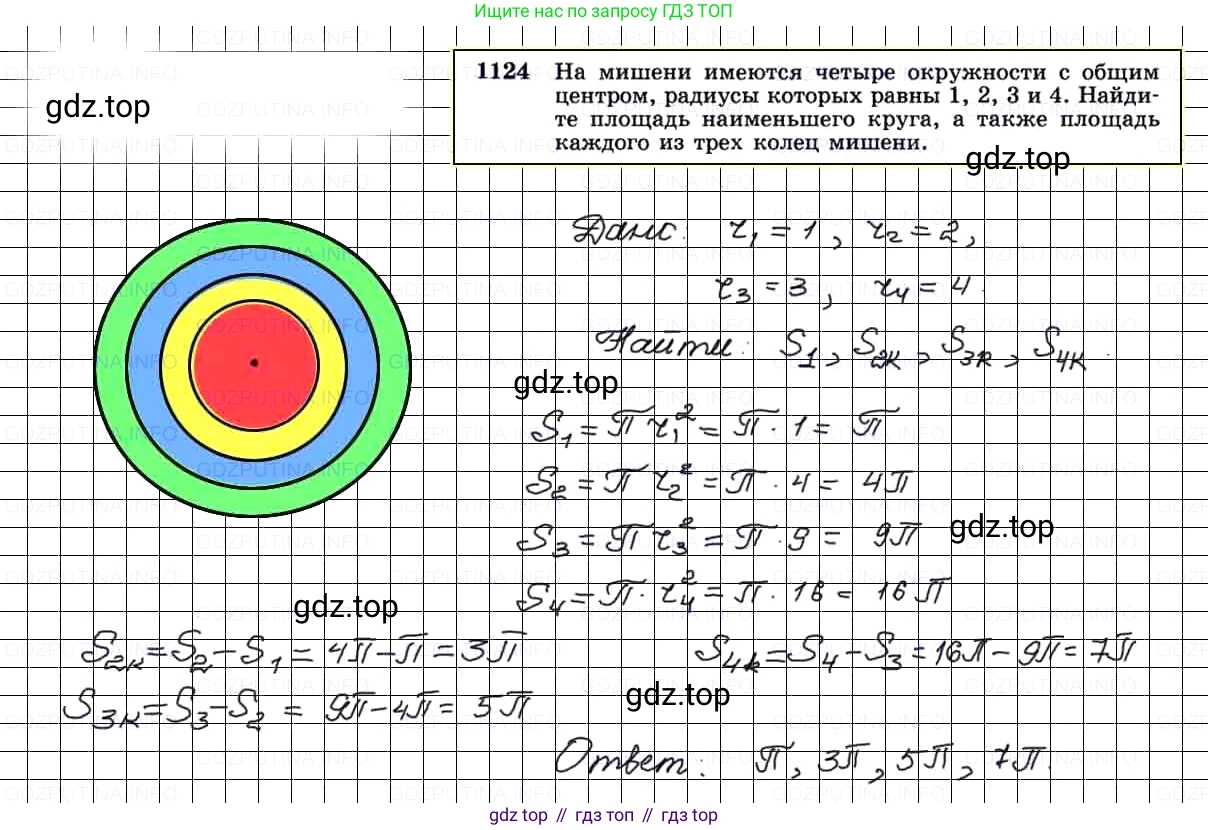 Ищите нас по запросу ГДЗ ТОП
gdz.top
1124 На мишени имеются четыре окружности с общим
центром, радиусы которых равны 1, 2, 3 и 4. Найди-
те площадь наименьшего круга, а также площадь
каждого из трех колец мишени.
gdz.top
Дано: r₁ = 1, r₂ = 2,
r₃ = 3, r₄ = 4.
Найти: S₁, S₂ₖ, S₃ₖ, S₄ₖ.
gdz.top
S₁ = П r₁² = П · 1 = П
S₂ = П r₂² = П · 4 = 4П
S₃ = П r₃² = П · 9 = 9П
gdz.top
S₄ = П · r₄² = П · 16 = 16 П
gdz.top
S₂ₖ = S₂ – S₁ = 4П – П = 3П
S₄ₖ = S₄ – S₃ = 16П – 9П = 7П
gdz.top
S₃ₖ = S₃ – S₂ = 9П – 4П = 5П
Ответ: П, 3П, 5П, 7П.
GDZPUTINA.INFO
gdz top // гдз топ // gdz top